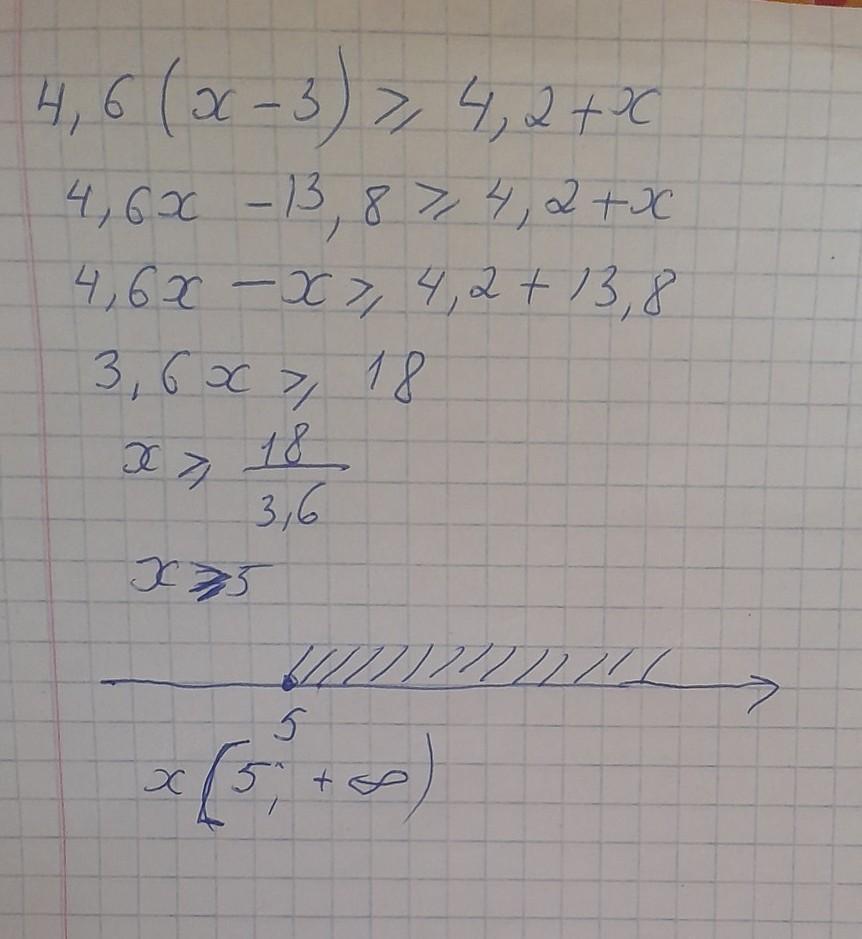 4,6(x-3)⩾4,2+x
4,6x-13,8⩾4,2+x
4,6x-x⩾4,2+13,8
3,6x⩾18
x⩾18/3,6
x⩾5
5
x[5;+∞)